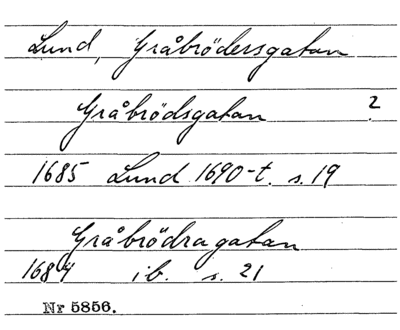 Lund, Gråbrödersgatan
Gråbrödsgatan ?
1685 Lund 1690-t. s. 19
Gråbrödragatan
1684 ib. s. 21
Nr 5856.